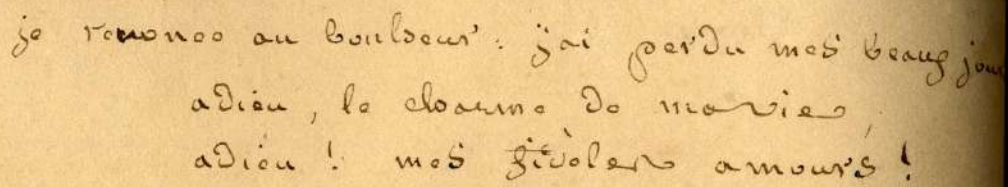 je renonce au bonheur : j'ai perdu mes beaux jours
adieu, le charme de ma vie,
adieu ! mes fidèles amours !